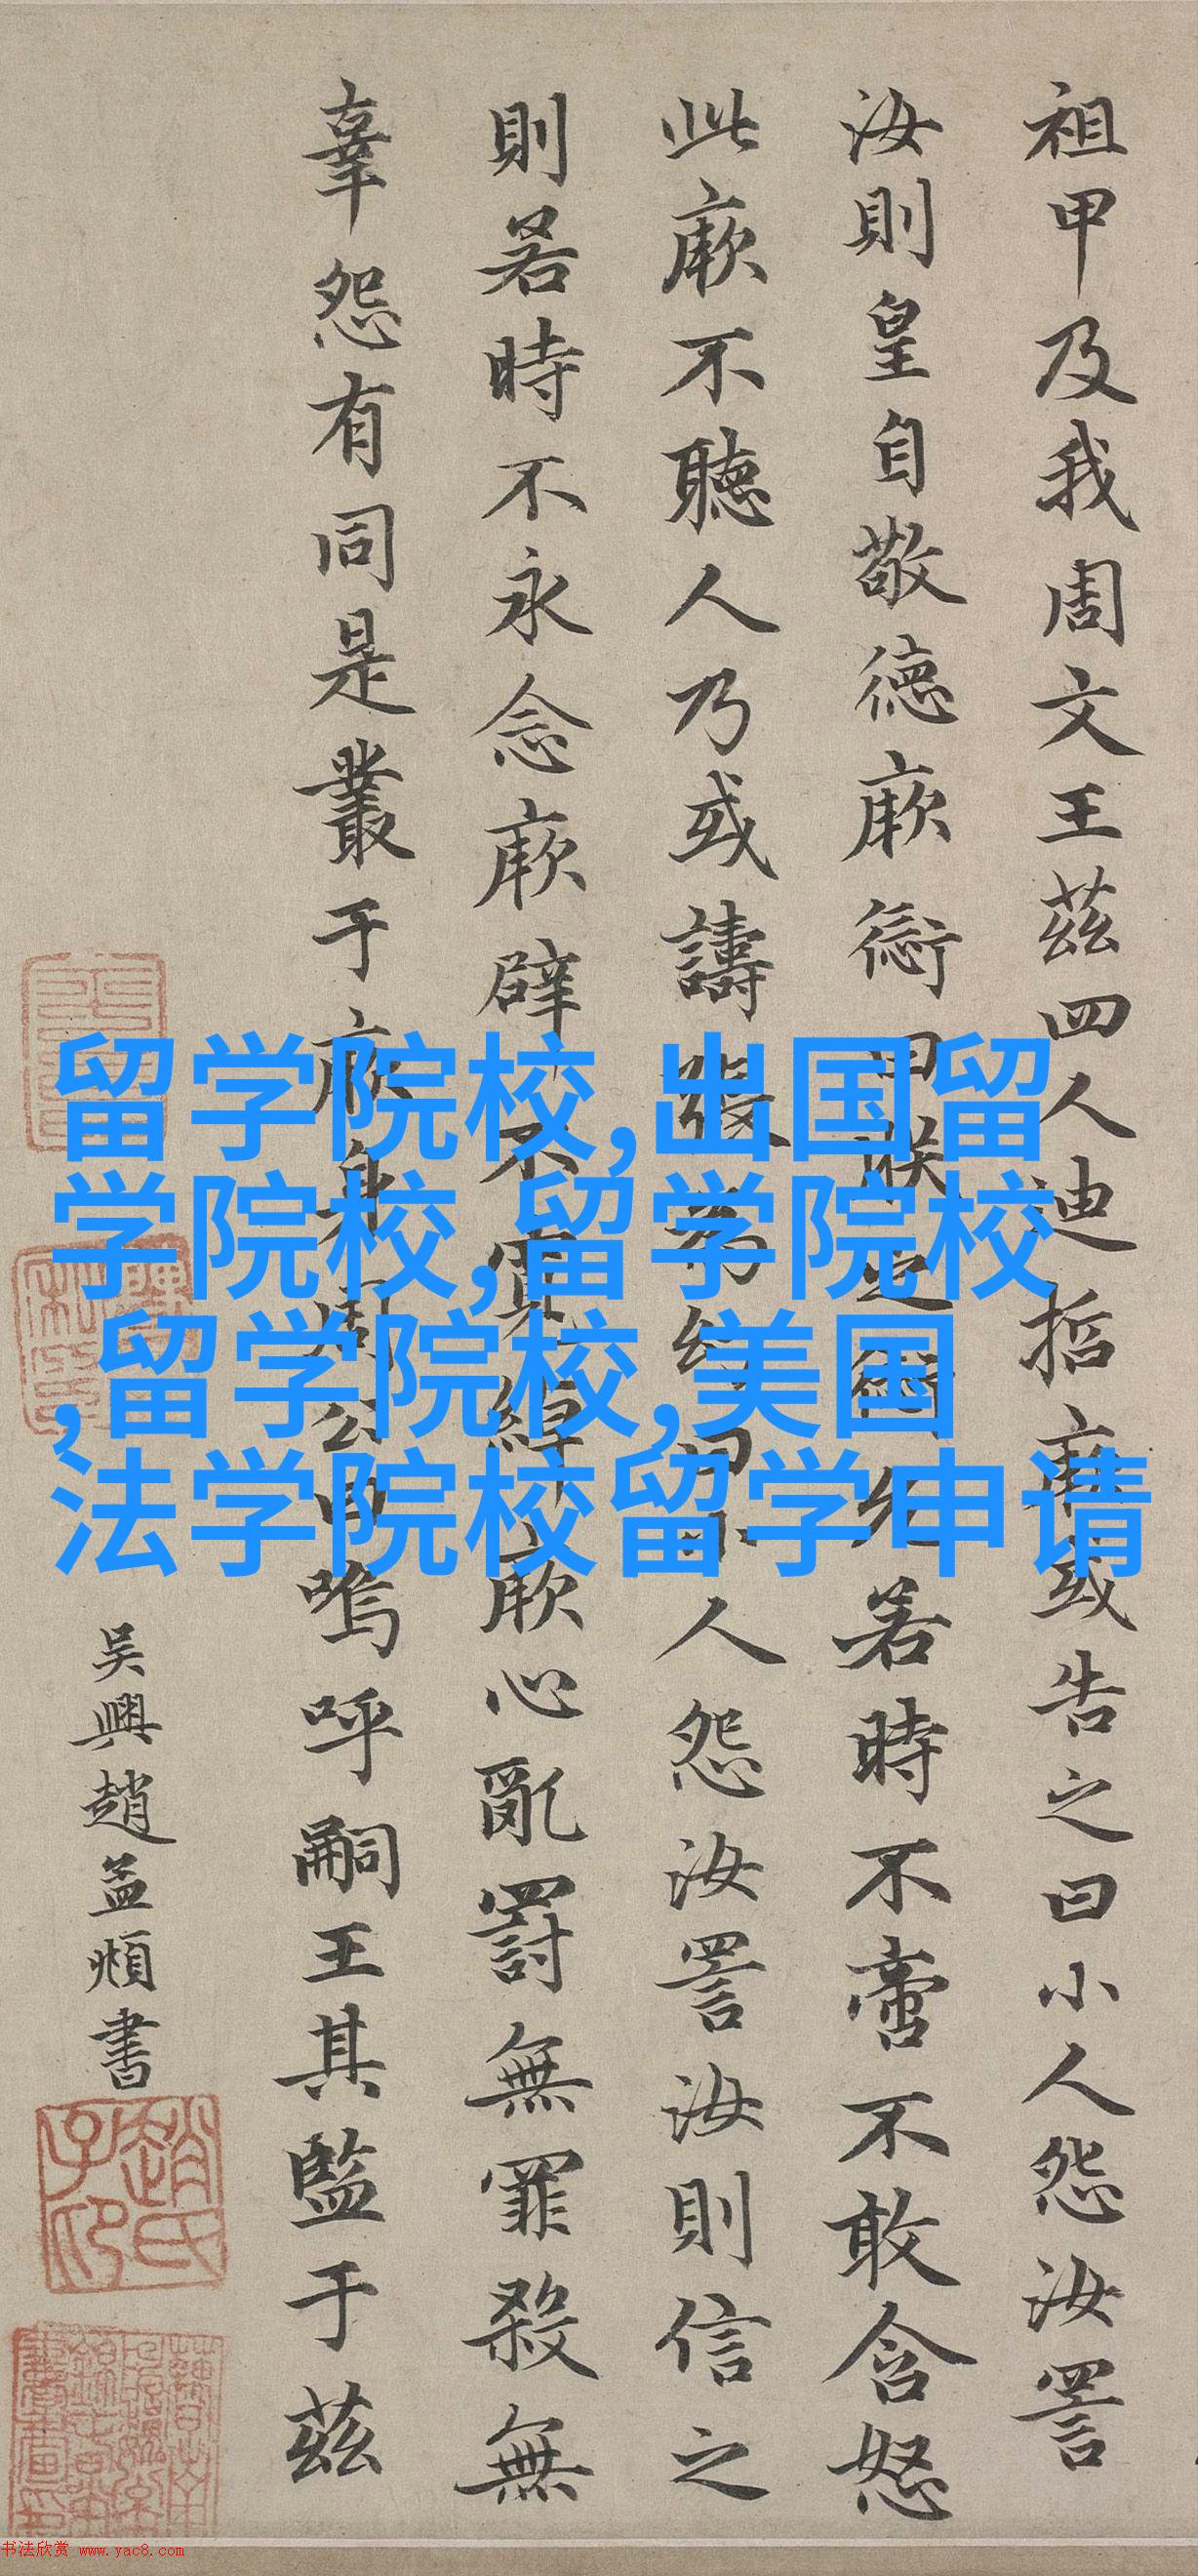 祖甲及我周文王茲四人迪哲厥或告之曰小人怨汝詈
汝則皇自敬德厥愆曰朕之愆允若時不啻不敢含怒
此厥不聽人乃或譸張為幻曰小人怨汝詈汝則信之
則若時不永念厥辟不寬綽厥心亂罰無罪殺無
辜怨有同是叢于厥身周公曰嗚呼嗣王其監于茲
吴興趙孟頫書
趙氏子昂
留学院校,出国留
学院校,留学院校
,留学院校,美国
法学院校留学申请
书法欣赏 www.yac8.com